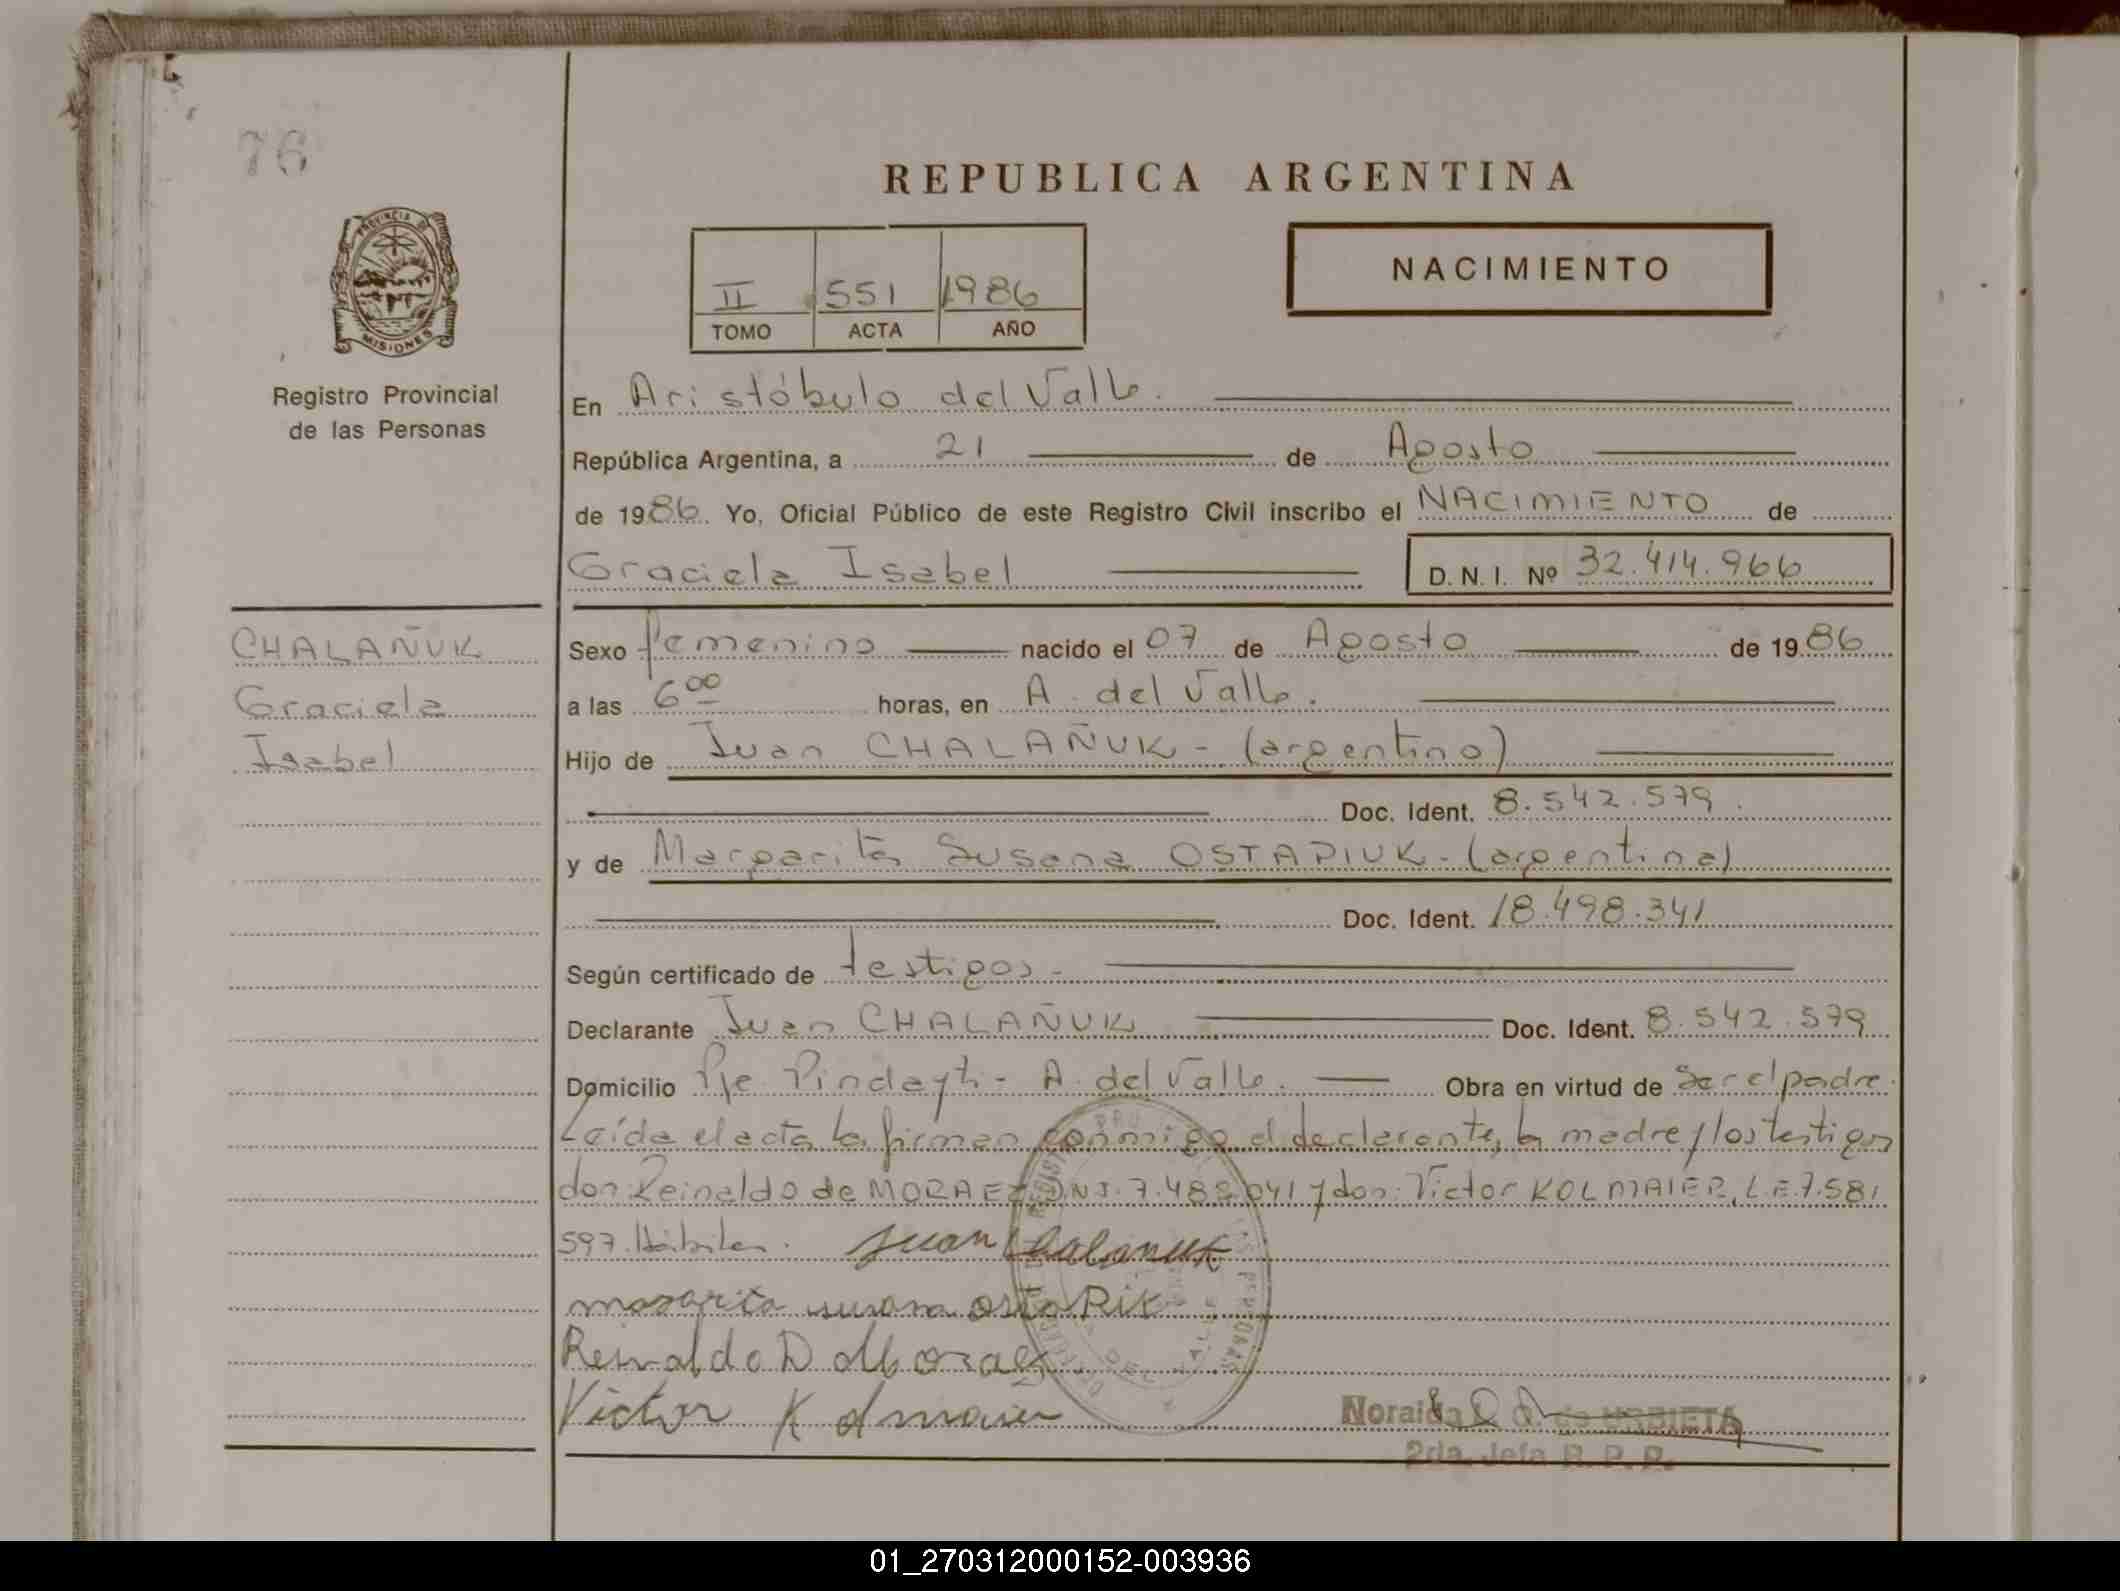 76
REPUBLICA ARGENTINA
PROVINCIA DE
MISIONES
II 551 1986
TOMO ACTA AÑO
NACIMIENTO
Registro Provincial
de las Personas
En Aristóbulo del Valle.
República Argentina, a 21 de Agosto
de 1986. Yo, Oficial Público de este Registro Civil inscribo el NACIMIENTO de
Graciela Isabel D. N. I. Nº 32.414.966
CHALAÑUK
Graciela
Isabel
Sexo femenino nacido el 07 de Agosto de 1986
a las 6 00 horas, en A. del Valle.
Hijo de Juan CHALAÑUK - (argentino)
Doc. Ident. 8.542.579.
y de Margarita Susana OSTAPIUK - (argentina)
Doc. Ident. 18.498.341
Según certificado de testigos -
Declarante Juan CHALAÑUK Doc. Ident. 8.542.579
Domicilio Pje. Pindayti - A. del Valle. Obra en virtud de Ser el padre.
Leída el acta la firman conmigo el declarante, la madre y los testigos
don: Reinaldo de MORAEZ D.N.I. 7.488.041 y don: Victor KOLMAIER, L.E. 7.581
597. Hábiles.
Juan Chalanuk
margarita susana osta
Reinaldo D Moraez
Victor Kolmaier
Noraida de URBIETA
2da. Jefa R. P. P.
01_270312000152-003936